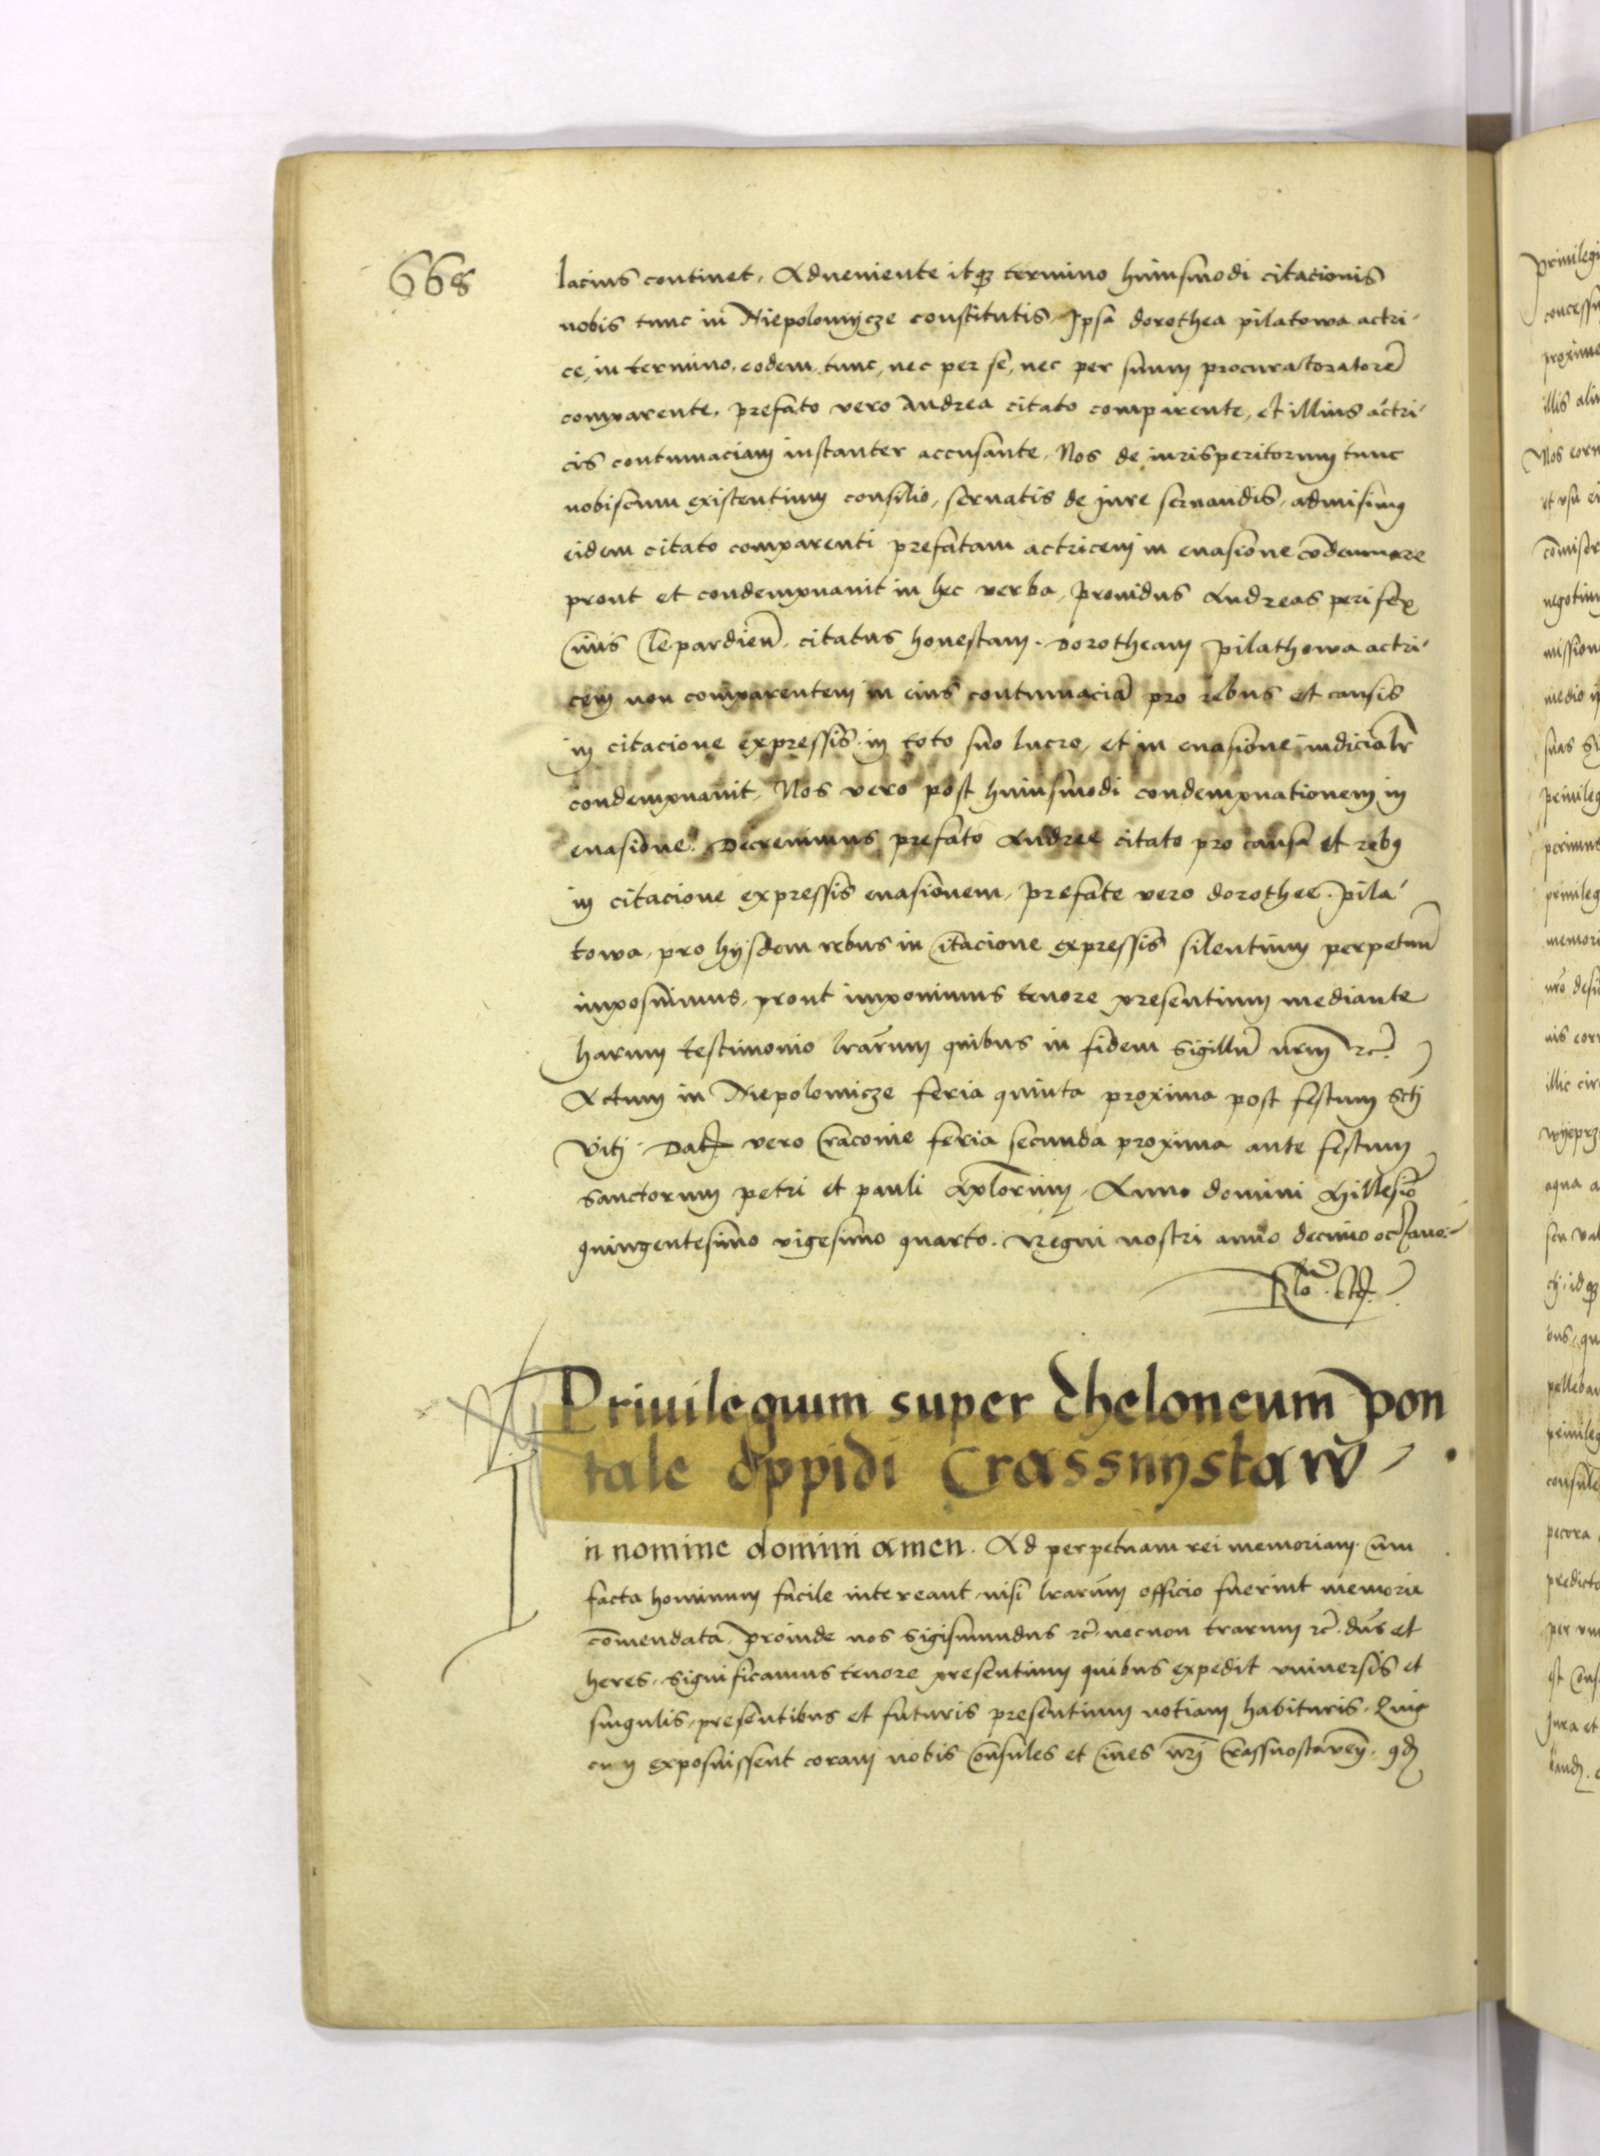 668
lacius continet, Adueniente itqz termino huiusmodi citacionis
nobis tunc in Niepolomycze constitutis, Ipsa dorothea pilatowa actri-
ce, in termino eodem tunc, nec per se, nec per suum procuratoratorē
comparente, prefato vero Andrea citato comparente, et illius actri-
cis contumaciam instanter accusante, Nos de iurisperitorum tunc
nobiscum existentium consilio, seruatis de Jure seruandis, admisimus
eidem citato comparenti prefatam actricem in euasione cōdemnare
prout et condempnauit in hec verba, prouidus Andreas perifex
Ciuis Clepardieñ citatus honestam Dorotheam Pilathowa actri-
cem non comparentem in eius contumaciā pro rebus et causis
in citacione expressis in toto suo lucro, et in euasione iudicialr
condempnauit, Nos vero post huiusmodi condempnationem in
euasione, Decreuimus prefato Andree citato pro causa et rebus
in citacione expressis euasionem, prefate vero dorothee pila-
towa, pro hijsdem rebus in citacione expressis silentium perpetuū
imposuimus, prout imponimus tenore presentium mediante
harum testimonio lrarum quibus in fidem sigillū nrm rc̄
Actum in Niepolomicze feria quinta proxima post festum Scti
Viti. Dat vero Cracouie feria secunda proxima ante festum
sanctorum petri et pauli Aplorum, Anno domini Millesīo
quingentesimo vigesimo quarto. Regni nostri anno decimo octauo.
Priuilegium super theloneum pon
tale oppidi Crassnystaw
In nomine domini amen. Ad perpetuam rei memoriam. Cum
facta hominum facile intereant nisi lrarum officio fuerint memorie
cōmendata, proinde nos Sigismundus rc̄ necnon trarum rc̄ dns et
heres. significamus tenore presentium quibus expedit vniuersis et
singulis, presentibus et futuris presentium notiam habituris. Quia
cum exposuissent coram nobis Consules et Ciues nri Crassnostauien. qd